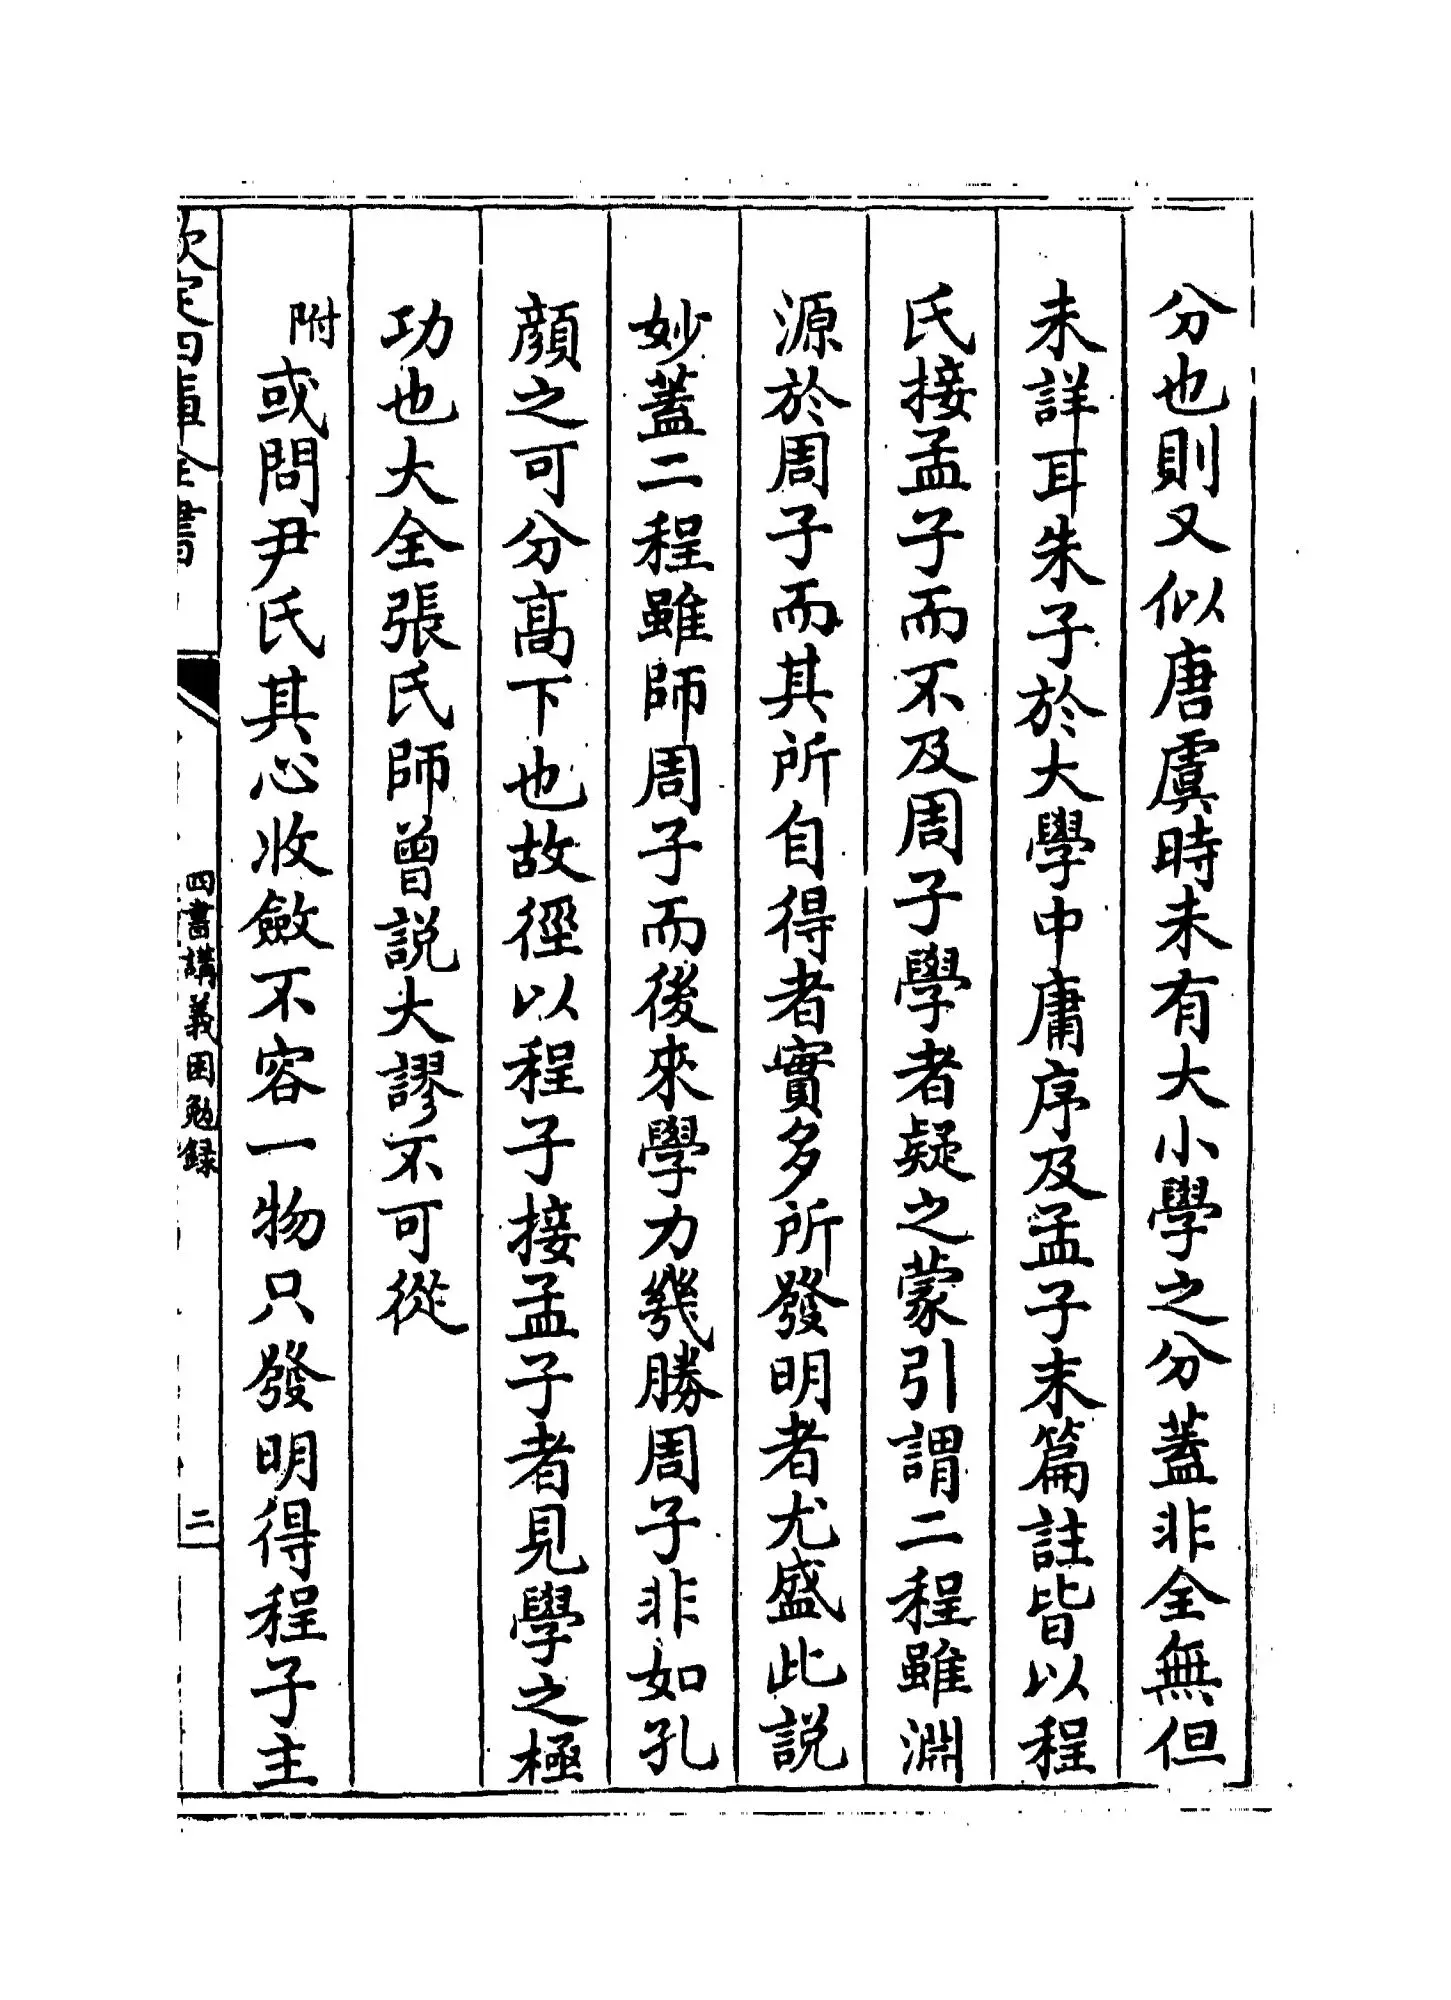 分也則又似唐虞時未有大小學之分蓋非全無但
未詳耳朱子於大學中庸序及孟子末篇註皆以程
氏接孟子而不及周子學者疑之蒙引謂二程雖淵
源於周子而其所自得者實多所發明者尤盛此説
妙蓋二程雖師周子而後來學力幾勝周子非如孔
顔之可分高下也故徑以程子接孟子者見學之極
功也大全張氏師曾説大謬不可從
附或問尹氏其心收斂不容一物只發明得程子主
欽定四庫全書
四書講義困勉録
二